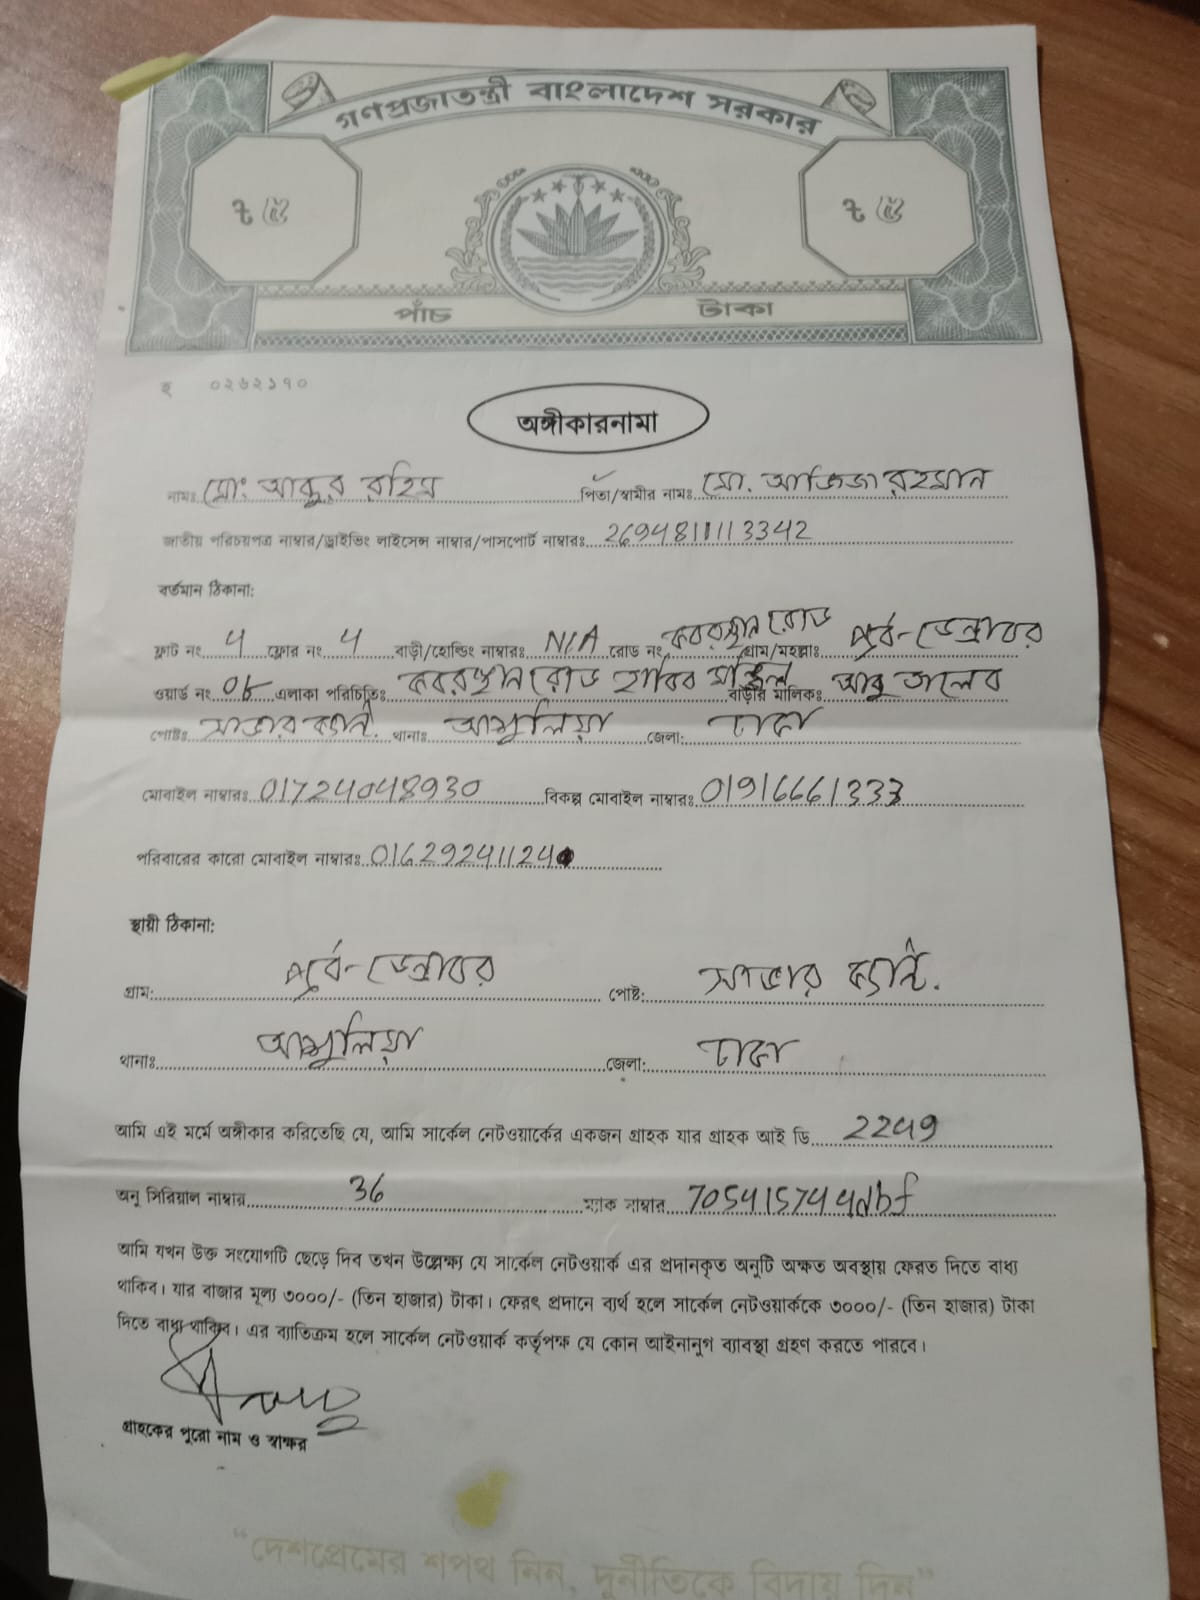 গণপ্রজাতন্ত্রী বাংলাদেশ সরকার
৳ ৫ ৳ ৫
পাঁচ টাকা
হ ০২৬২১৭০
অঙ্গীকারনামা
নামঃ মোঃ আব্দুর রহিম পিতা/স্বামীর নামঃ মো. আজিজার রহমান
জাতীয় পরিচয়পত্র নাম্বার/ড্রাইভিং লাইসেন্স নাম্বার/পাসপোর্ট নাম্বারঃ 2694811113342
বর্তমান ঠিকানা:
ফ্লাট নং 4 ফ্লোর নং 4 বাড়ী/হোল্ডিং নাম্বারঃ N/A রোড নং কবরস্থান রোড গ্রাম/মহল্লাঃ পূর্ব-ডেন্ডাবর
ওয়ার্ড নং 08 এলাকা পরিচিতিঃ কবরস্থান রোড হাবিব মঞ্জিল বাড়ীর মালিকঃ আবু তালেব
পোষ্টঃ সাভার ক্যান্ট. থানাঃ আশুলিয়া জেলা: ঢাকা
মোবাইল নাম্বারঃ 01724048930 বিকল্প মোবাইল নাম্বারঃ 01916661333
পরিবারের কারো মোবাইল নাম্বারঃ 01629241124
স্থায়ী ঠিকানা:
গ্রাম: পূর্ব-ডেন্ডাবর পোষ্ট: সাভার ক্যান্ট.
থানাঃ আশুলিয়া জেলা: ঢাকা
আমি এই মর্মে অঙ্গীকার করিতেছি যে, আমি সার্কেল নেটওয়ার্কের একজন গ্রাহক যার গ্রাহক আই ডি 2249
অনু সিরিয়াল নাম্বার 36 ম্যাক নাম্বার 7054157449bf
আমি যখন উক্ত সংযোগটি ছেড়ে দিব তখন উল্লেক্ষ্য যে সার্কেল নেটওয়ার্ক এর প্রদানকৃত অনুটি অক্ষত অবস্থায় ফেরত দিতে বাধ্য
থাকিব। যার বাজার মূল্য ৩০০০/- (তিন হাজার) টাকা। ফেরৎ প্রদানে ব্যর্থ হলে সার্কেল নেটওয়ার্ককে ৩০০০/- (তিন হাজার) টাকা
দিতে বাধ্য থাকিব। এর ব্যাতিক্রম হলে সার্কেল নেটওয়ার্ক কর্তৃপক্ষ যে কোন আইনানুগ ব্যাবস্থা গ্রহণ করতে পারবে।
গ্রাহকের পুরো নাম ও স্বাক্ষর
“দেশপ্রেমের শপথ নিন, দুর্নীতিকে বিদায় দিন”